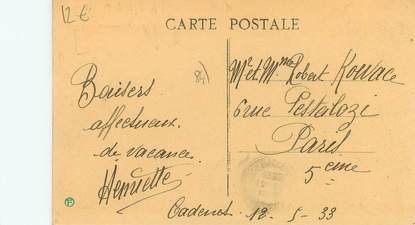 12 €
CARTE POSTALE
84)
Baisers
affectueux
de vacances
Henriette
Mr et Mme Robert Kovace
6 rue Pestalozi
Paris
5eme
Cadenet 12 - 5 - 33